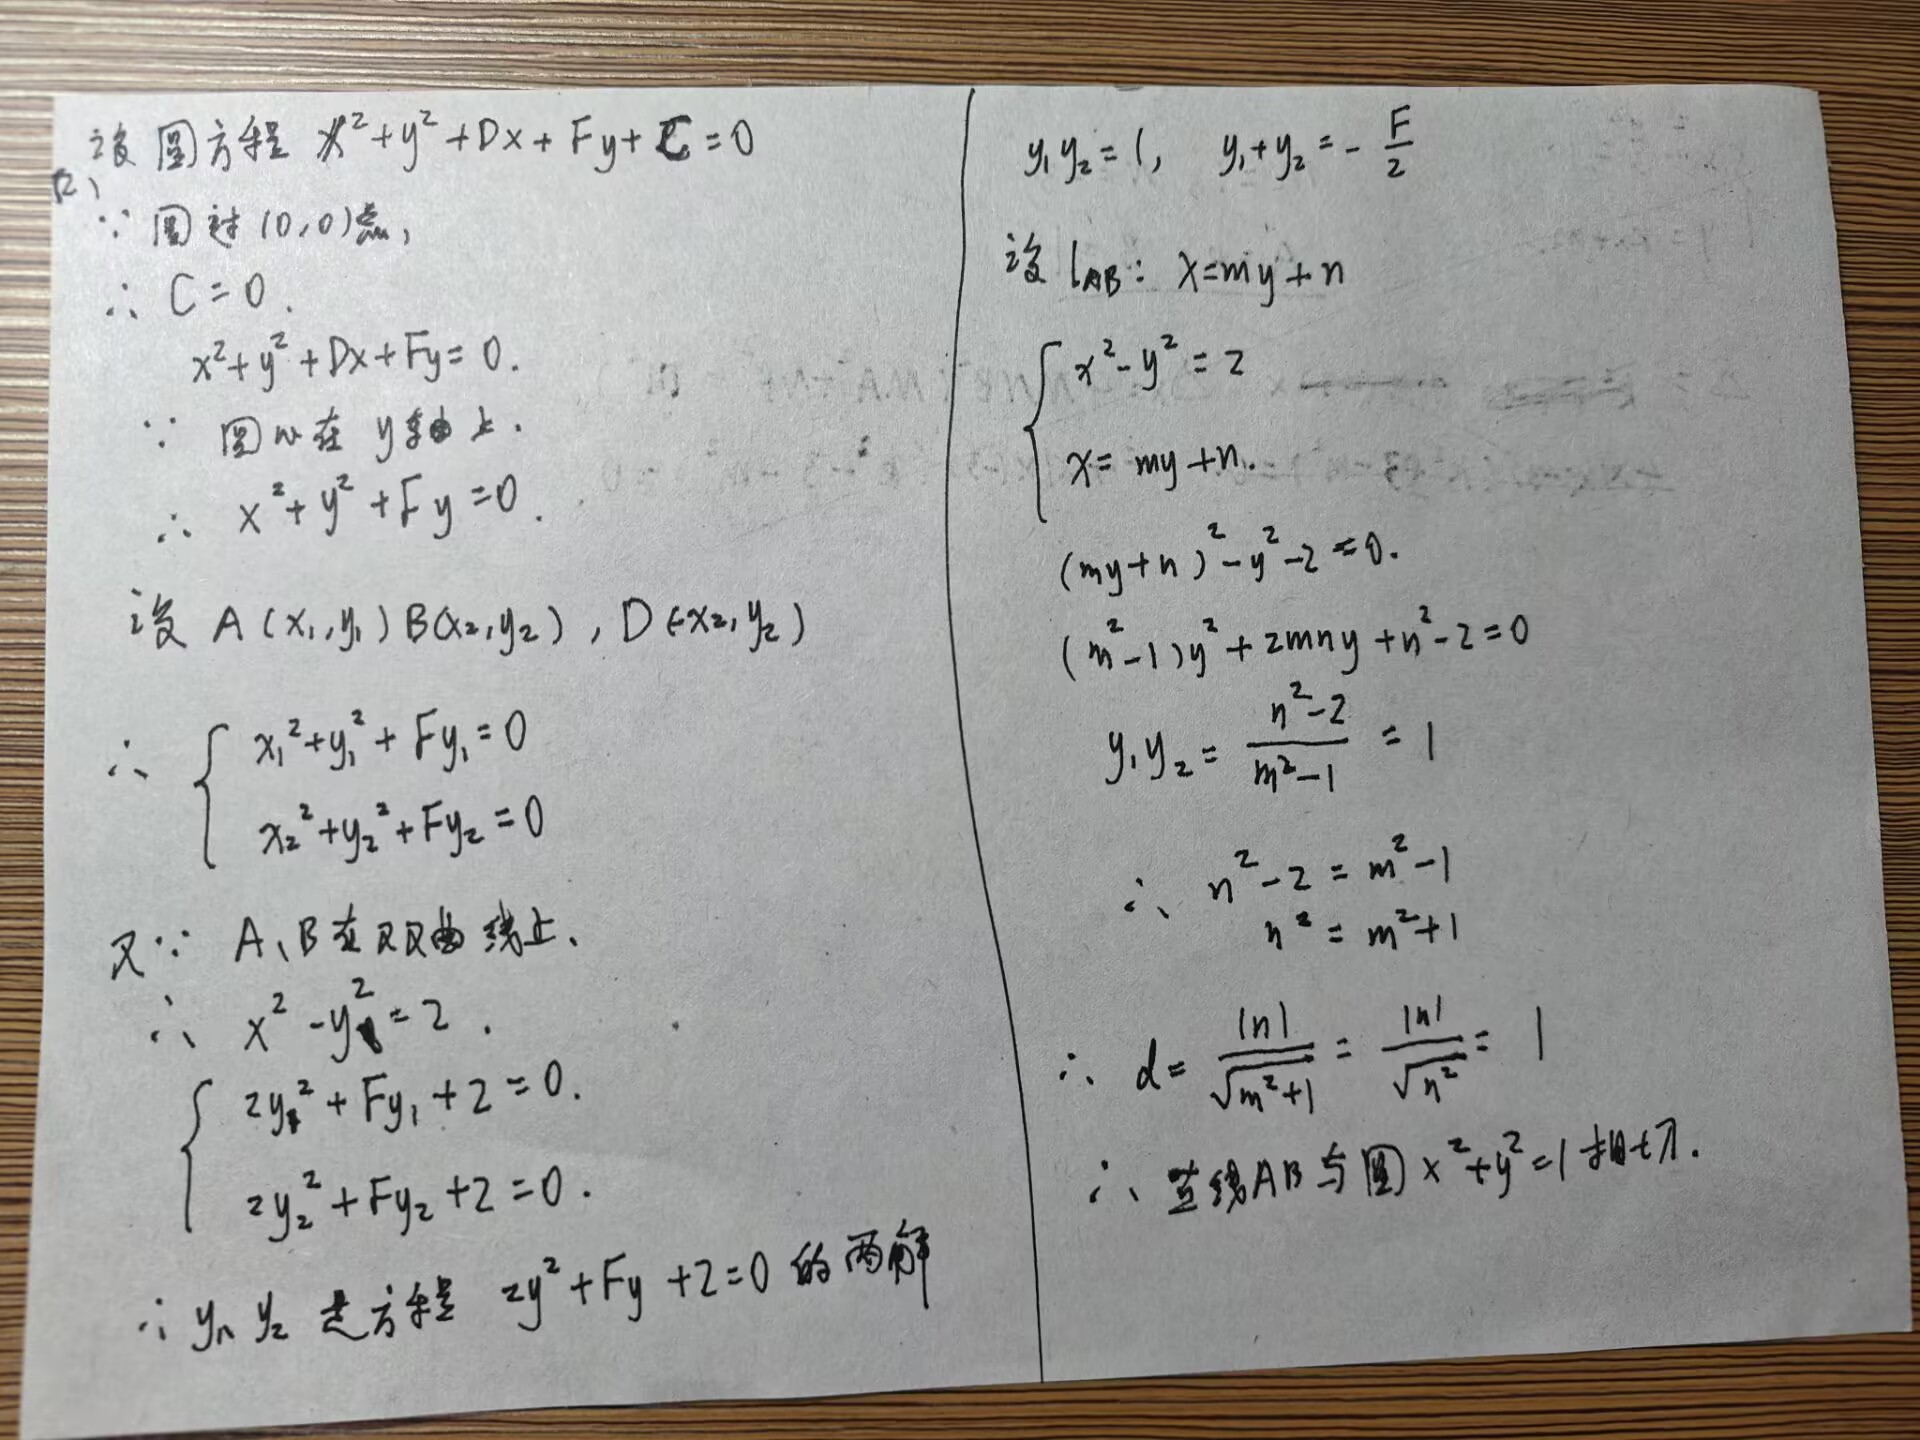 设圆方程 x²+y²+Dx+Fy+C=0
∵ 圆过(0,0)点,
∴ C=0.
x²+y²+Dx+Fy=0.
∵ 圆心在y轴上.
∴ x²+y²+Fy=0.
设 A(x₁,y₁) B(x₂,y₂), D(-x₂,y₂)
∴ { x₁²+y₁²+Fy₁=0
x₂²+y₂²+Fy₂=0
又∵ A、B在双曲线上、
∴ x²-y²=2.
{ 2y₁²+Fy₁+2=0.
2y₂²+Fy₂+2=0.
∴ y₁, y₂ 是方程 2y²+Fy+2=0 的两解
y₁y₂=1, y₁+y₂=-F/2
设 l_AB: x=my+n
{ x²-y²=2
x=my+n.
(my+n)²-y²-2=0.
(m²-1)y²+2mny+n²-2=0
y₁y₂=(n²-2)/(m²-1)=1
∴ n²-2=m²-1
n²=m²+1
∴ d=|n|/√(m²+1)=|n|/√(n²)=1
∴ 直线AB与圆x²+y²=1相切.